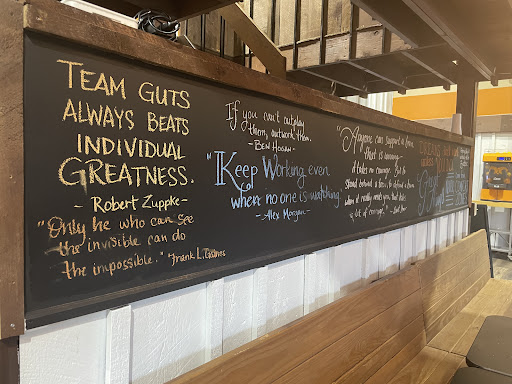 TEAM GUTS
ALWAYS BEATS
INDIVIDUAL
GREATNESS.
- Robert Zuppke -
"Only he who can see
the invisible can do
the impossible." - Frank L. Gaines
If you can't outplay
them, outwork them.
- BEN HOGAN -
"Keep Working even
when no one is watching"
- Alex Morgan -
"Anyone can support a team
that is winning -
it takes no courage. But to
stand behind a team, to defend a team
when it really needs you, that takes
a lot of courage." -